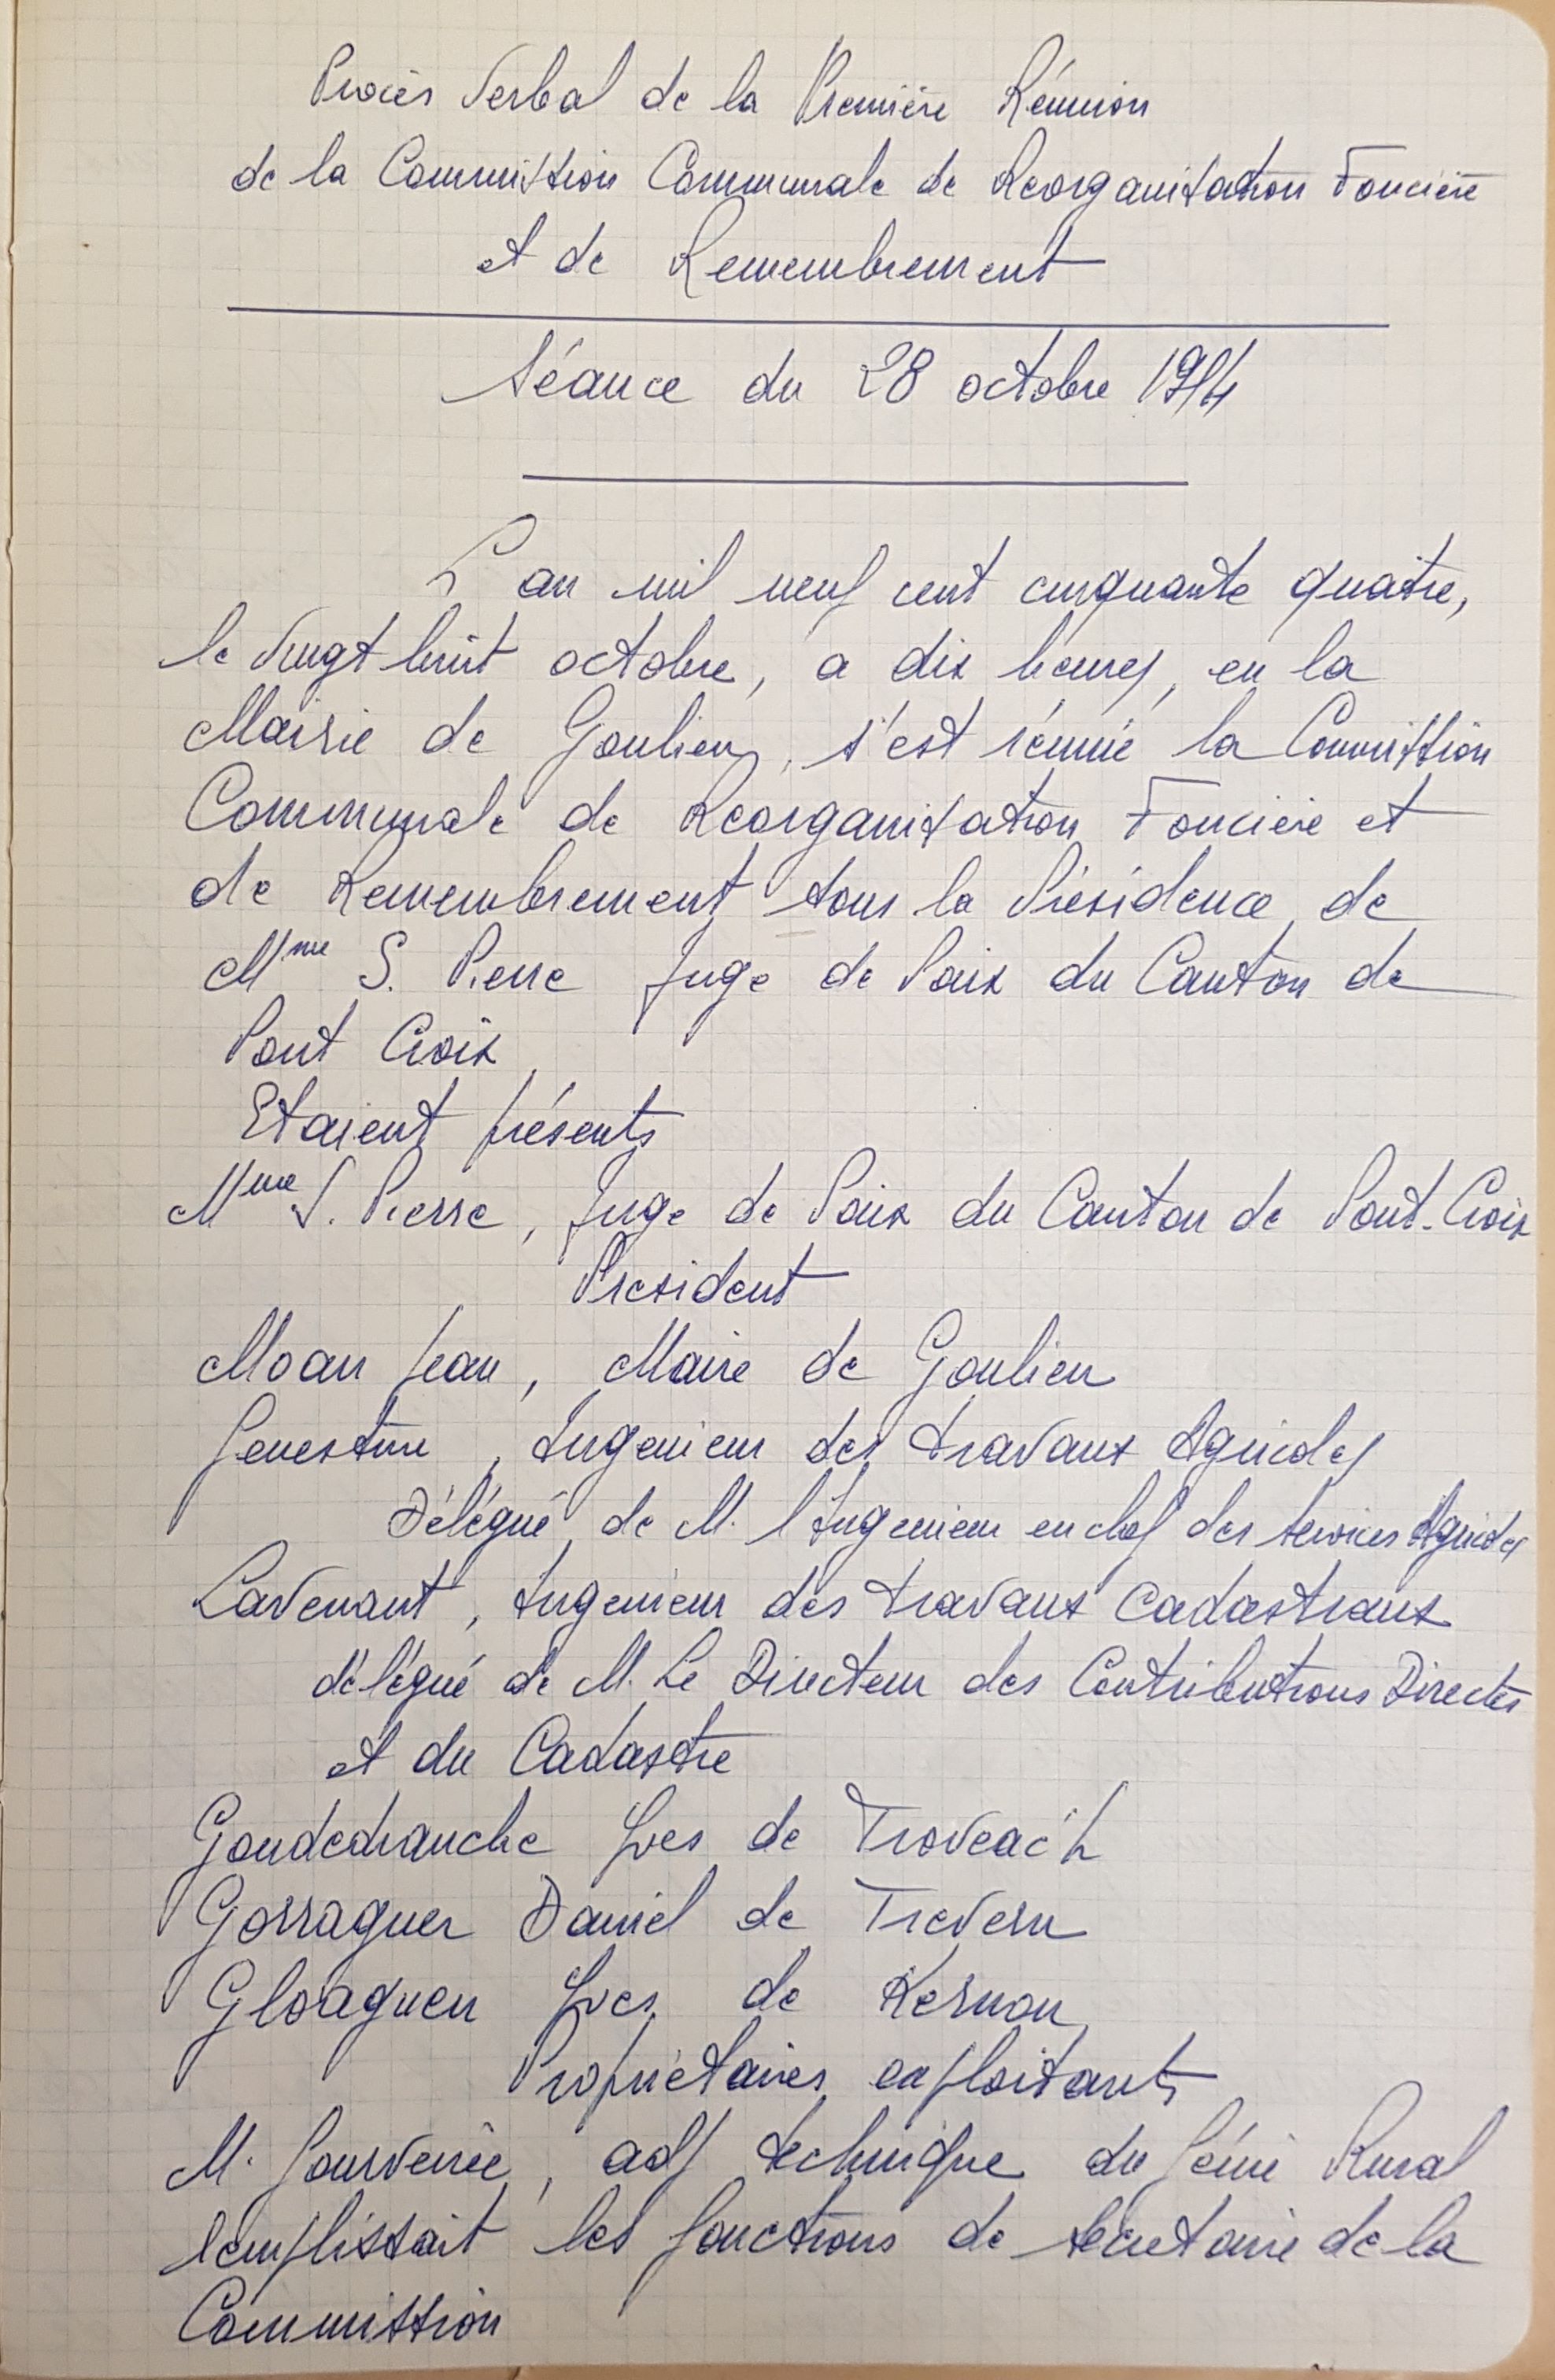 Procès Verbal de la Première Réunion
de la Commission Communale de Reorganisation Foncière
et de Remembrement
Séance du 28 octobre 1954
L'an mil neuf cent cinquante quatre,
le vingt huit octobre, a dix heures, en la
Mairie de Goulien, s'est réunie la Commission
Communale de Reorganisation Foncière et
de Remembrement sous la Présidence de
Mme S. Pierre Juge de Paix du Canton de
Pont Croix
Etaient présents
Mme S. Pierre, Juge de Paix du Canton de Pont-Croix
President
Moan Jean, Maire de Goulien
Genestine, Ingenieur des travaux Agricoles
Délégué de M. l'Ingenieur en chef des services Agricoles
Lavenant, Ingenieur des travaux Cadastraux
délégué de M. Le Directeur des Contributions Directes
et du Cadastre
Goudedranche Yves de Troveac'h
Gorraguer Daniel de Trevern
Gloaguen Yves de Kernon
Propriétaires exploitants
M. , adj technique du Génie Rural
remplissait les fonctions de secretaire de la
Commission